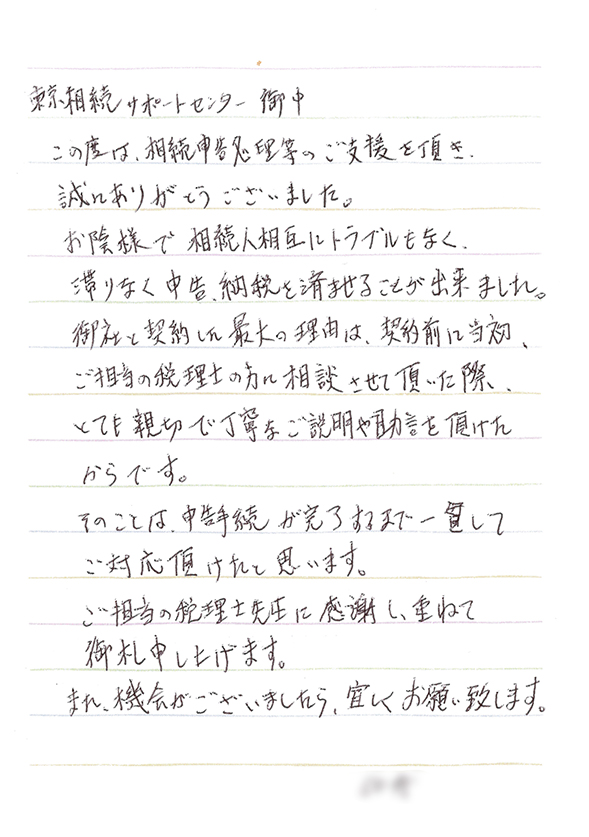 東京相続サポートセンター 御中
この度は、相続申告処理等のご支援を頂き、
誠にありがとうございました。
お陰様で相続人相互にトラブルもなく、
滞りなく申告、納税を済ませることが出来ました。
御社と契約した最大の理由は、契約前に当初、
ご担当の税理士の方に相談させて頂いた際、
とても親切で丁寧なご説明や助言を頂けた
からです。
そのことは、申告手続が完了するまで一貫して
ご対応頂けたと思います。
ご担当の税理士先生に感謝し、重ねて
御礼申し上げます。
また、機会がございましたら、宜しくお願い致します。